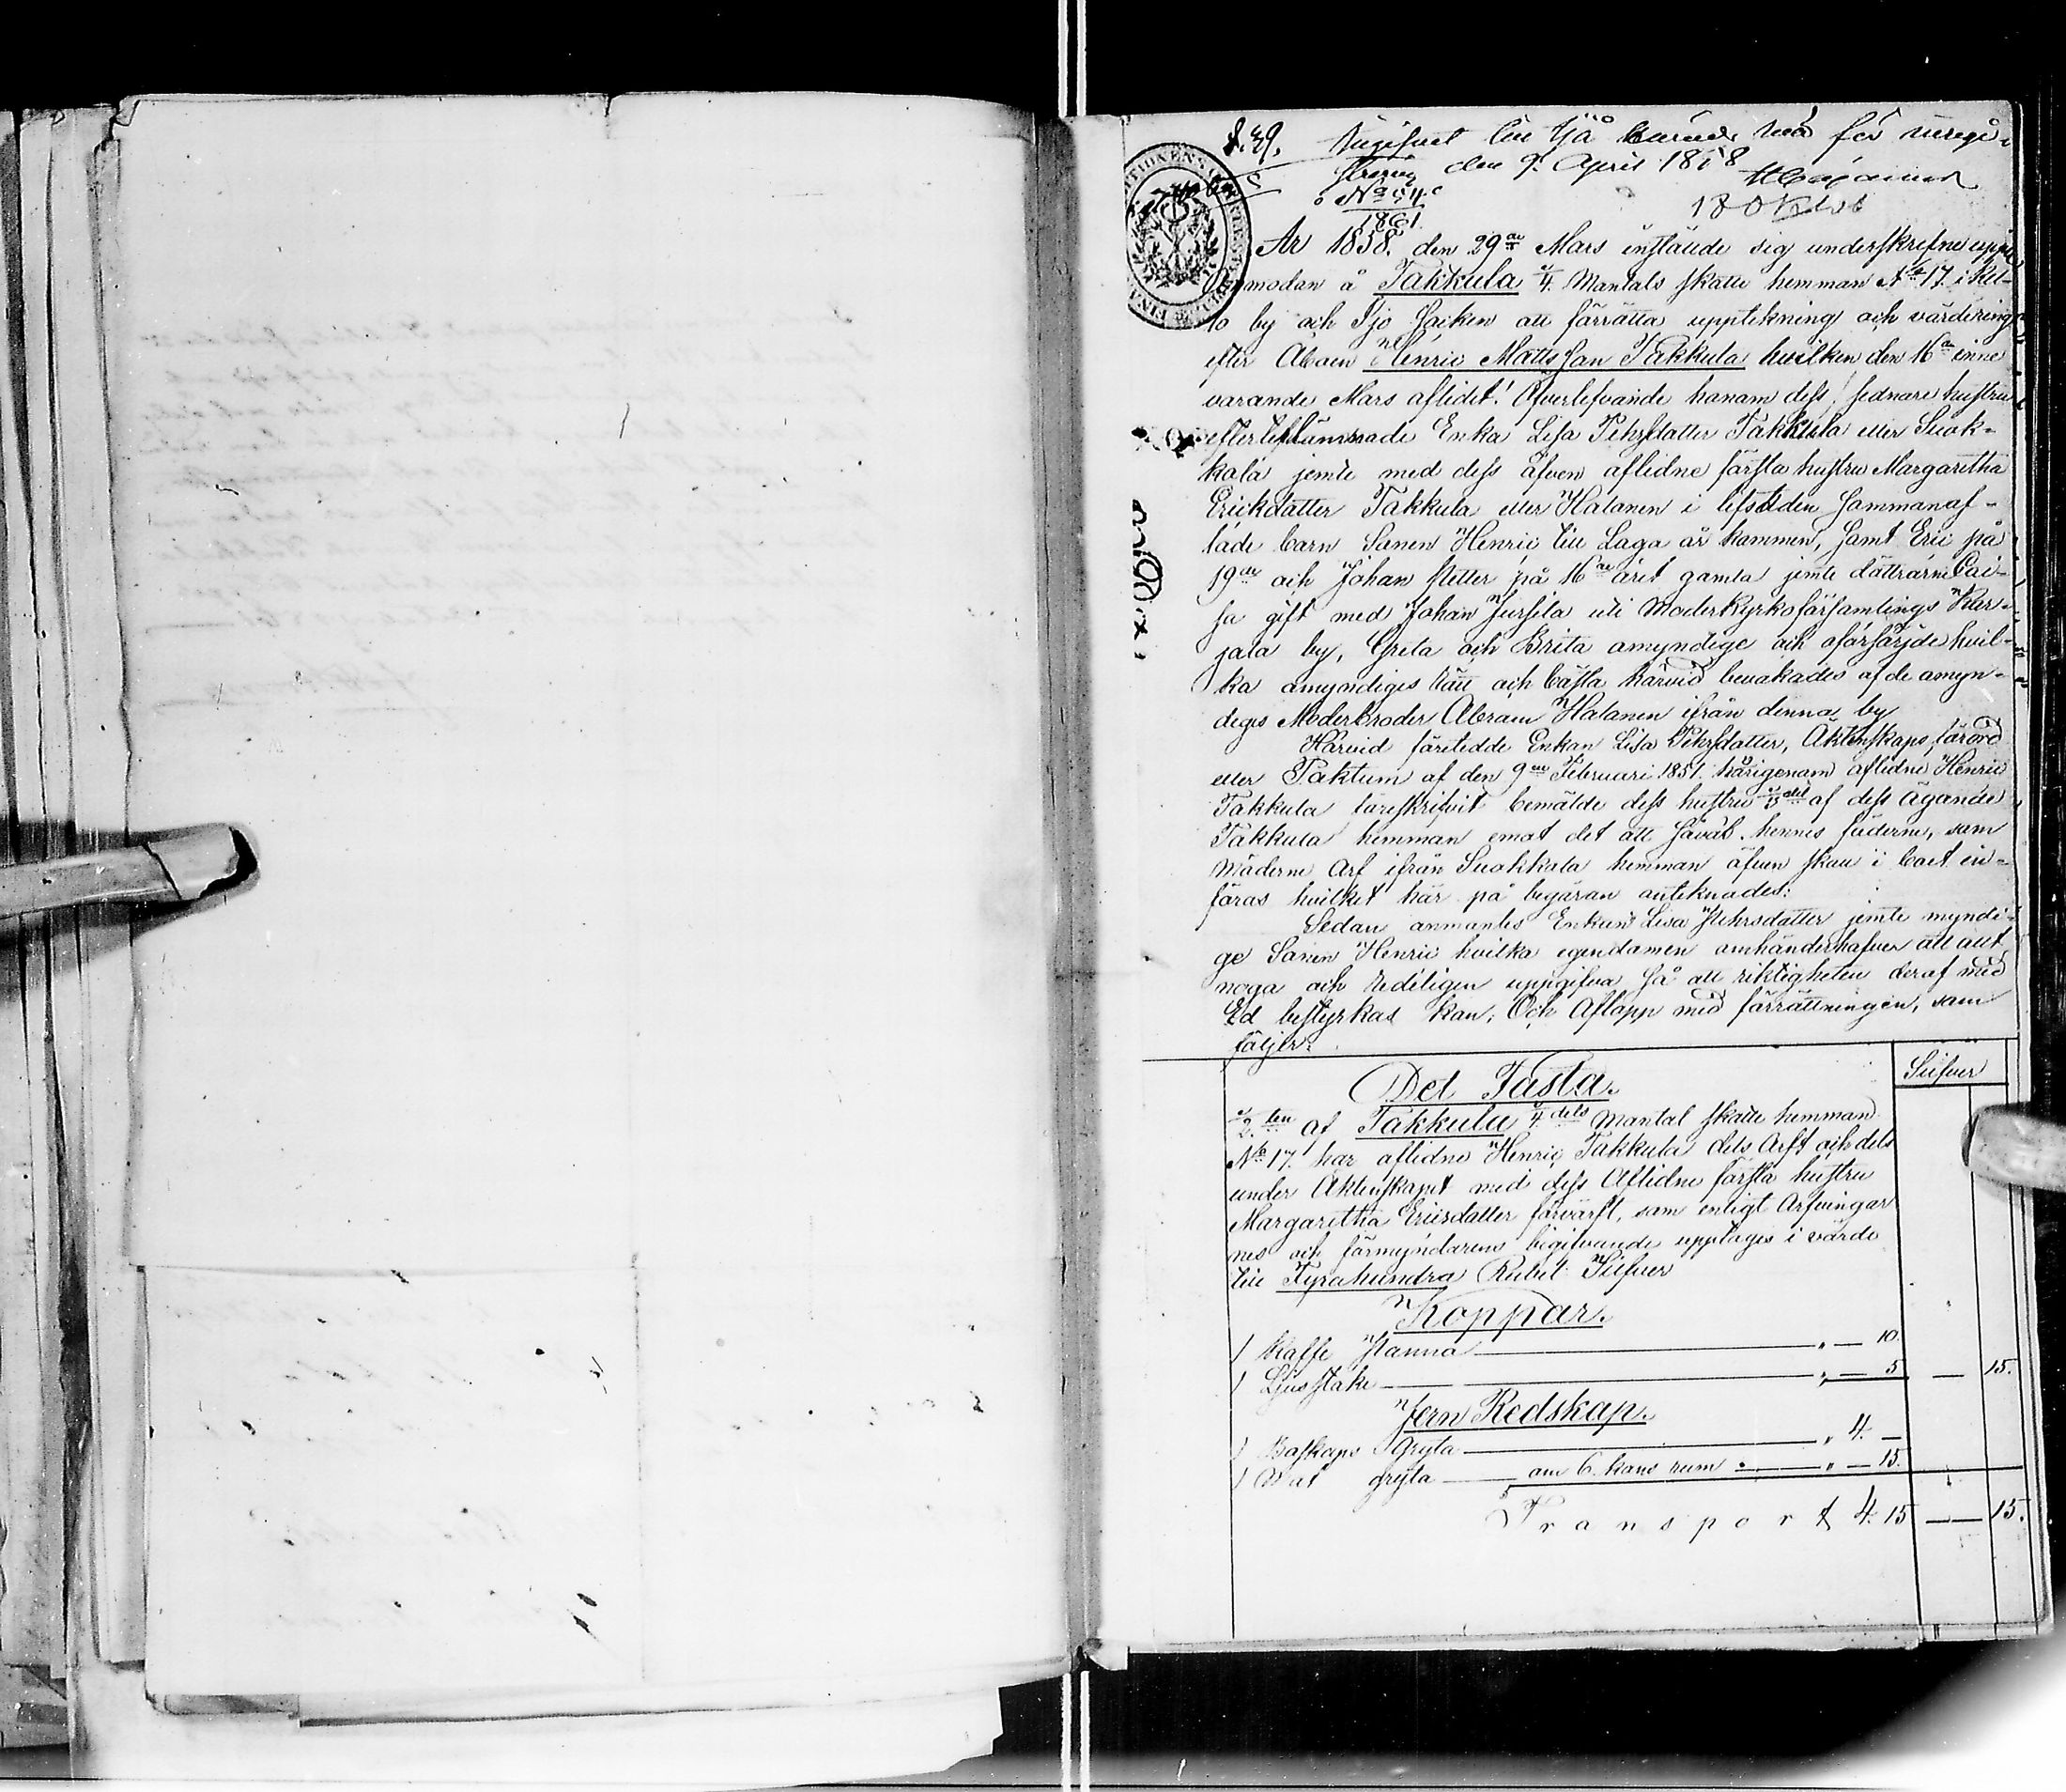 den 9. April 1858
No 54.
1861
År 1858. den 29de Mars instälde sig underskrefne uppå
anmodan å Takkula 1/4 Mantals skatte hemman No 17. i Kel-
lo by och Ijo Socken att förrätta uppteknings och värdering
efter Åboen Henric Mattsson Takkula hvilken den 16de inne
varande Mars aflidit! Öfverlefvande honom dess sednare hustru
efterlemnade Enka Lisa Pehrsdotter Takkula eller Suok-
kala jemte med dess äfven aflidne första hustru Margaretha
Ericksdotter Takkula eller Halonen i lifstiden sammanaf-
lade barn Sonen Henric till Laga år kommen, samt Eric på
19de och Johan Petter på 16de året gamla jemte döttrarne Cai-
sa gift med Johan Jussila uti Moderkyrkoförsamlings Kar-
jala by, Greta och Brita omyndige och oförsörjde hvil-
ka omyndiges rätt och bästa härvid bevakades af de omyn-
diges Moderbroder Abram Halonen ifrån denna by
Härvid företedde Enkan Lisa Pehrsdotter, Äktenskaps förord
eller Paktum af den 9de Februari 1851. härigenom aflidne Henric
Takkula föreskrifvit bemälde dess hustru 1/3 del af dess ägande
Takkula hemman emot det att såväl hennes fäderne, som
Möderne Arf ifrån Suokkala hemman äfven skall i boet in-
föras hvilket här på begäran anteknades:
Sedan anmantes Enkan Lisa Pehrsdotter jemte myndi-
ge Sonen Henric hvilka egendomen omhänderhafver att allt
noga och redeligen uppgifva så att riktigheten deraf med
Ed bestyrkas kan; Och Aflopp med förrättningen, som
följer:
Det Fasta. Silfver
1/2 ten af Takkula 1/4 dels Mantal skatte hemman
No 17. har aflidne Henric Takkula dels Ärft och dels
under Äktenskapet med dess Aflidne första hustru
Margaretha Ericsdotter förvärft, som enligt Arfvingar
nes och förmyndarens begifvande upptages i värde
till Fyrahundra Rubel Silfver
Koppar.
1 Kaffe Panna " — 10.
1 Ljusstake " — 5 — 15.
Jern Redskap.
1 Boskaps Gryta " 4. —
1 Mat gryta om 6. kans rum " — 15.
Transport 4. 15 — 15.